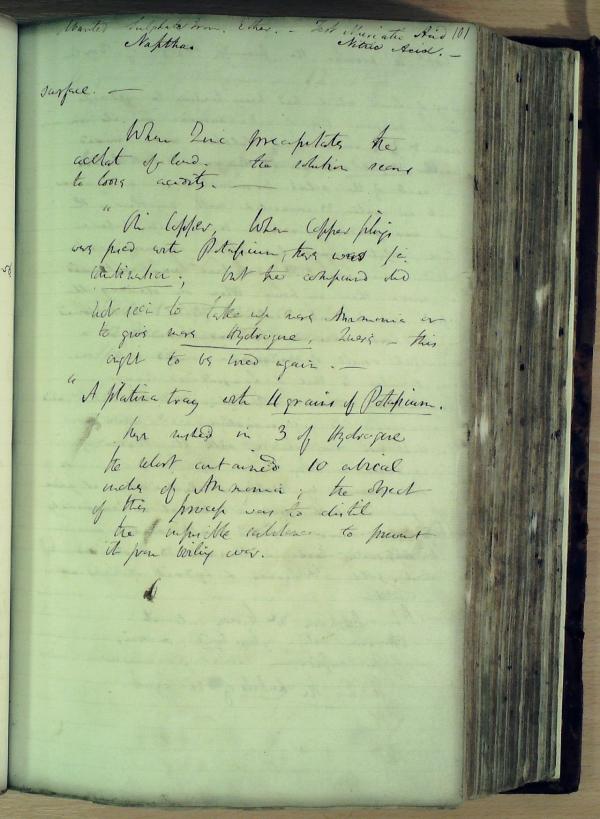 Wanted Sulphate Iron. Ether. – Test Muriatic Acid 101
Naptha. Nitric Acid. –
surface. —
When Zinc precipitates the
acetat of lead. the solution seems
to loose acidity. —
" On Copper, When Copper filings
were fused with Potassium, there was
; but the compound did
not seem to take up more Ammonia or
to give more Hydrogene, Quere – this
ought to be tried again. —
" A platina tray with 11 grains of Potassium.
heated in 3 of Hydrogene
the retort contained 10 cubical
inches of Ammonia; the object
of this process was to distil
the fusible substance to prevent
it from boiling over.